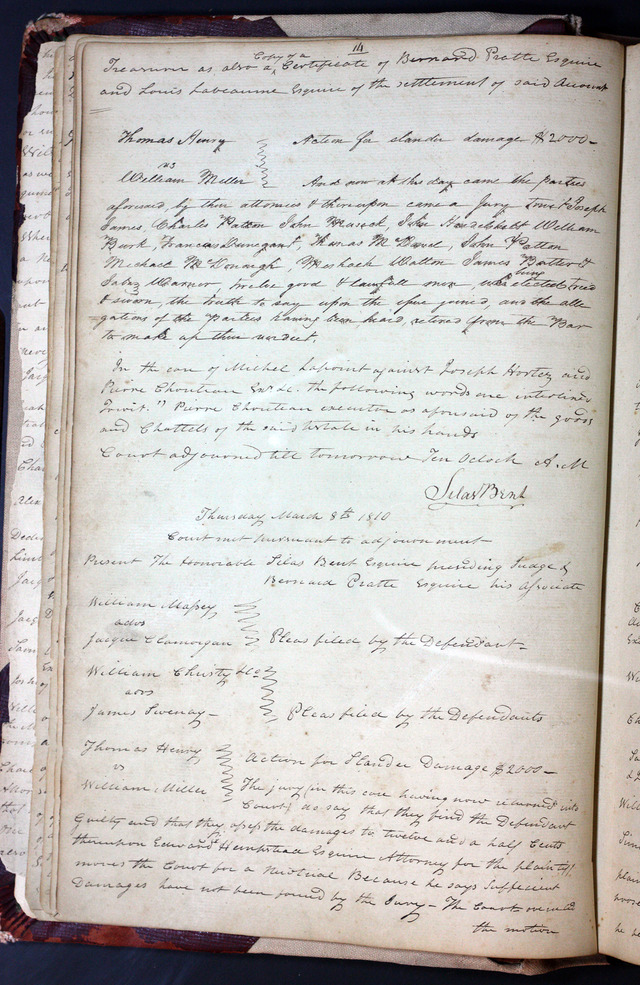 14
Treasurer as also a Copy of a Certificate of Bernard Pratte Esquire
and Louis Labeaume Esquire of the settlement of said Account
Thomas Henry
vs
William Miller
Action for slander damage $2000-
And now at this day came the parties
aforesaid by their attornies & thereupon came a Jury Towit Joseph
James, Charles Patton John John William
Burk, Francis Dunegant, Thomas M John Patton
Michael McDonough, Meshack Watton James &
Jabez Warner, twelve good & lawfull men, who being elected tried
& sworn, the truth to say upon the issue joined, and the alle
gations of the Parties having been heard, retired from the Bar
to make up their verdict.
In the case of Michel Lapoint against Joseph Hortez and
Pierre Chouteau Exr &c. the following words are interlined
Towit. " Pierre Chouteau executor as aforesaid of the goods
and Chattels of the said Estate in his hands
Court adjourned till tomorrow Ten Oclock A.M
Silas Bent
Thursday March 8th 1810
Court met pursuant to adjournment
Present The Honorable Silas Bent Esquire presiding Judge &
Bernard Pratte Esquire his Associate
William Massey
advs
Jacque Clamorgan
Pleas filed by the Defendant-
William Christy & Co
advs
James Sweney-
Pleas filed by the Defendants
Thomas Henry
vs
William Miller
Action for Slander Damage $2000-
The jury (in this case having now returned into
Court) do say that they find the Defendant
Guilty and that they assess the damages to twelve and a half Cents
thereupon Edward Hempstead Esquire Attorney for the plaintiff
moves the Court for a New trial Because he says sufficient
Damages have not been found by the Jury- The Court overruled
the motion